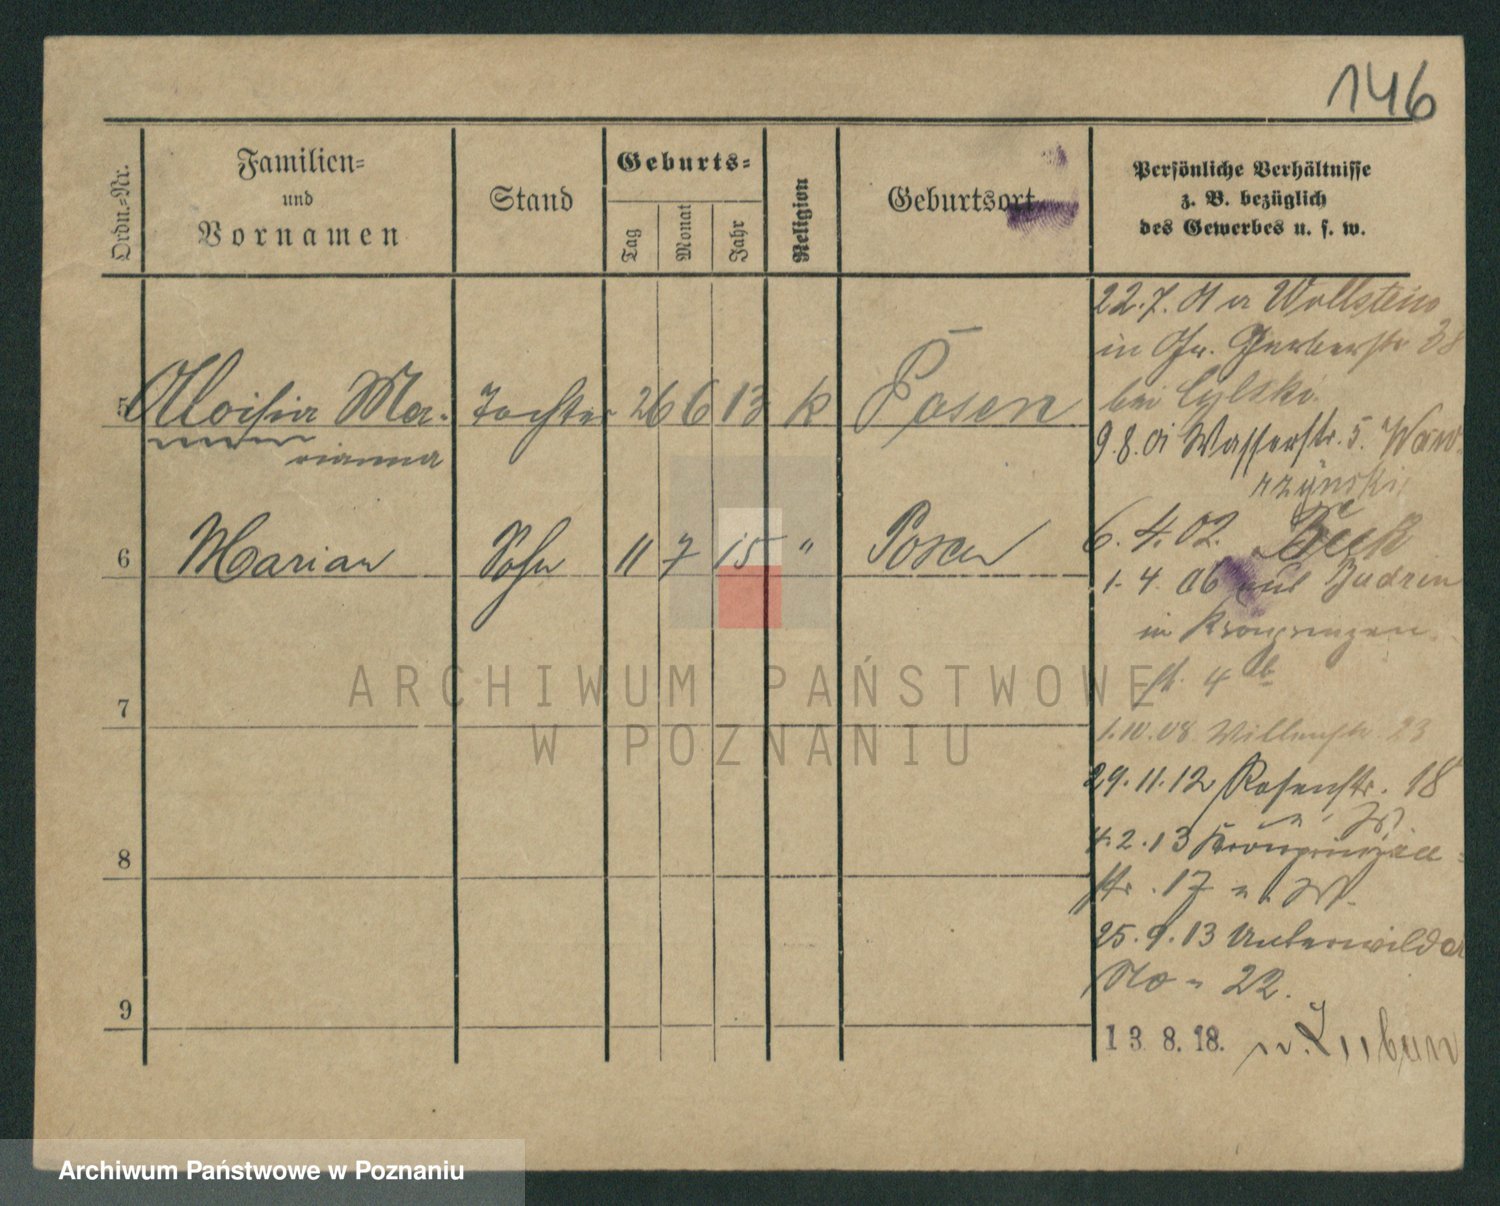 146
Ordn.=Nr.
Familien=
und
Vornamen
Stand
Geburts=
Tag
Monat
Jahr
Religion
Geburtsort
Persönliche Verhältnisse
z. B. bezüglich
des Gewerbes u. s. w.
5 Aloisia Ma-
rianna
Tochter 26 6 13 k Posen
6 Marian Sohn 11 7 15 " Posen
7
8
9
22.7.01 Wollstein
in Gr. Gerberstr 38
bei
9.8.01 Wasserstr. 5. Waw-
rzynski
6.4.02.
1.4.06
in Kronprinzen
str. 4 b
1.10.08 23
29.11.12 Rosenstr. 18
4.2.13 Kronprinzen-
str. 17
25.9.13 Unterwilda
No 22.
13.8.18. n. Luban
ARCHIWUM PAŃSTWOWE
W POZNANIU
Archiwum Państwowe w Poznaniu